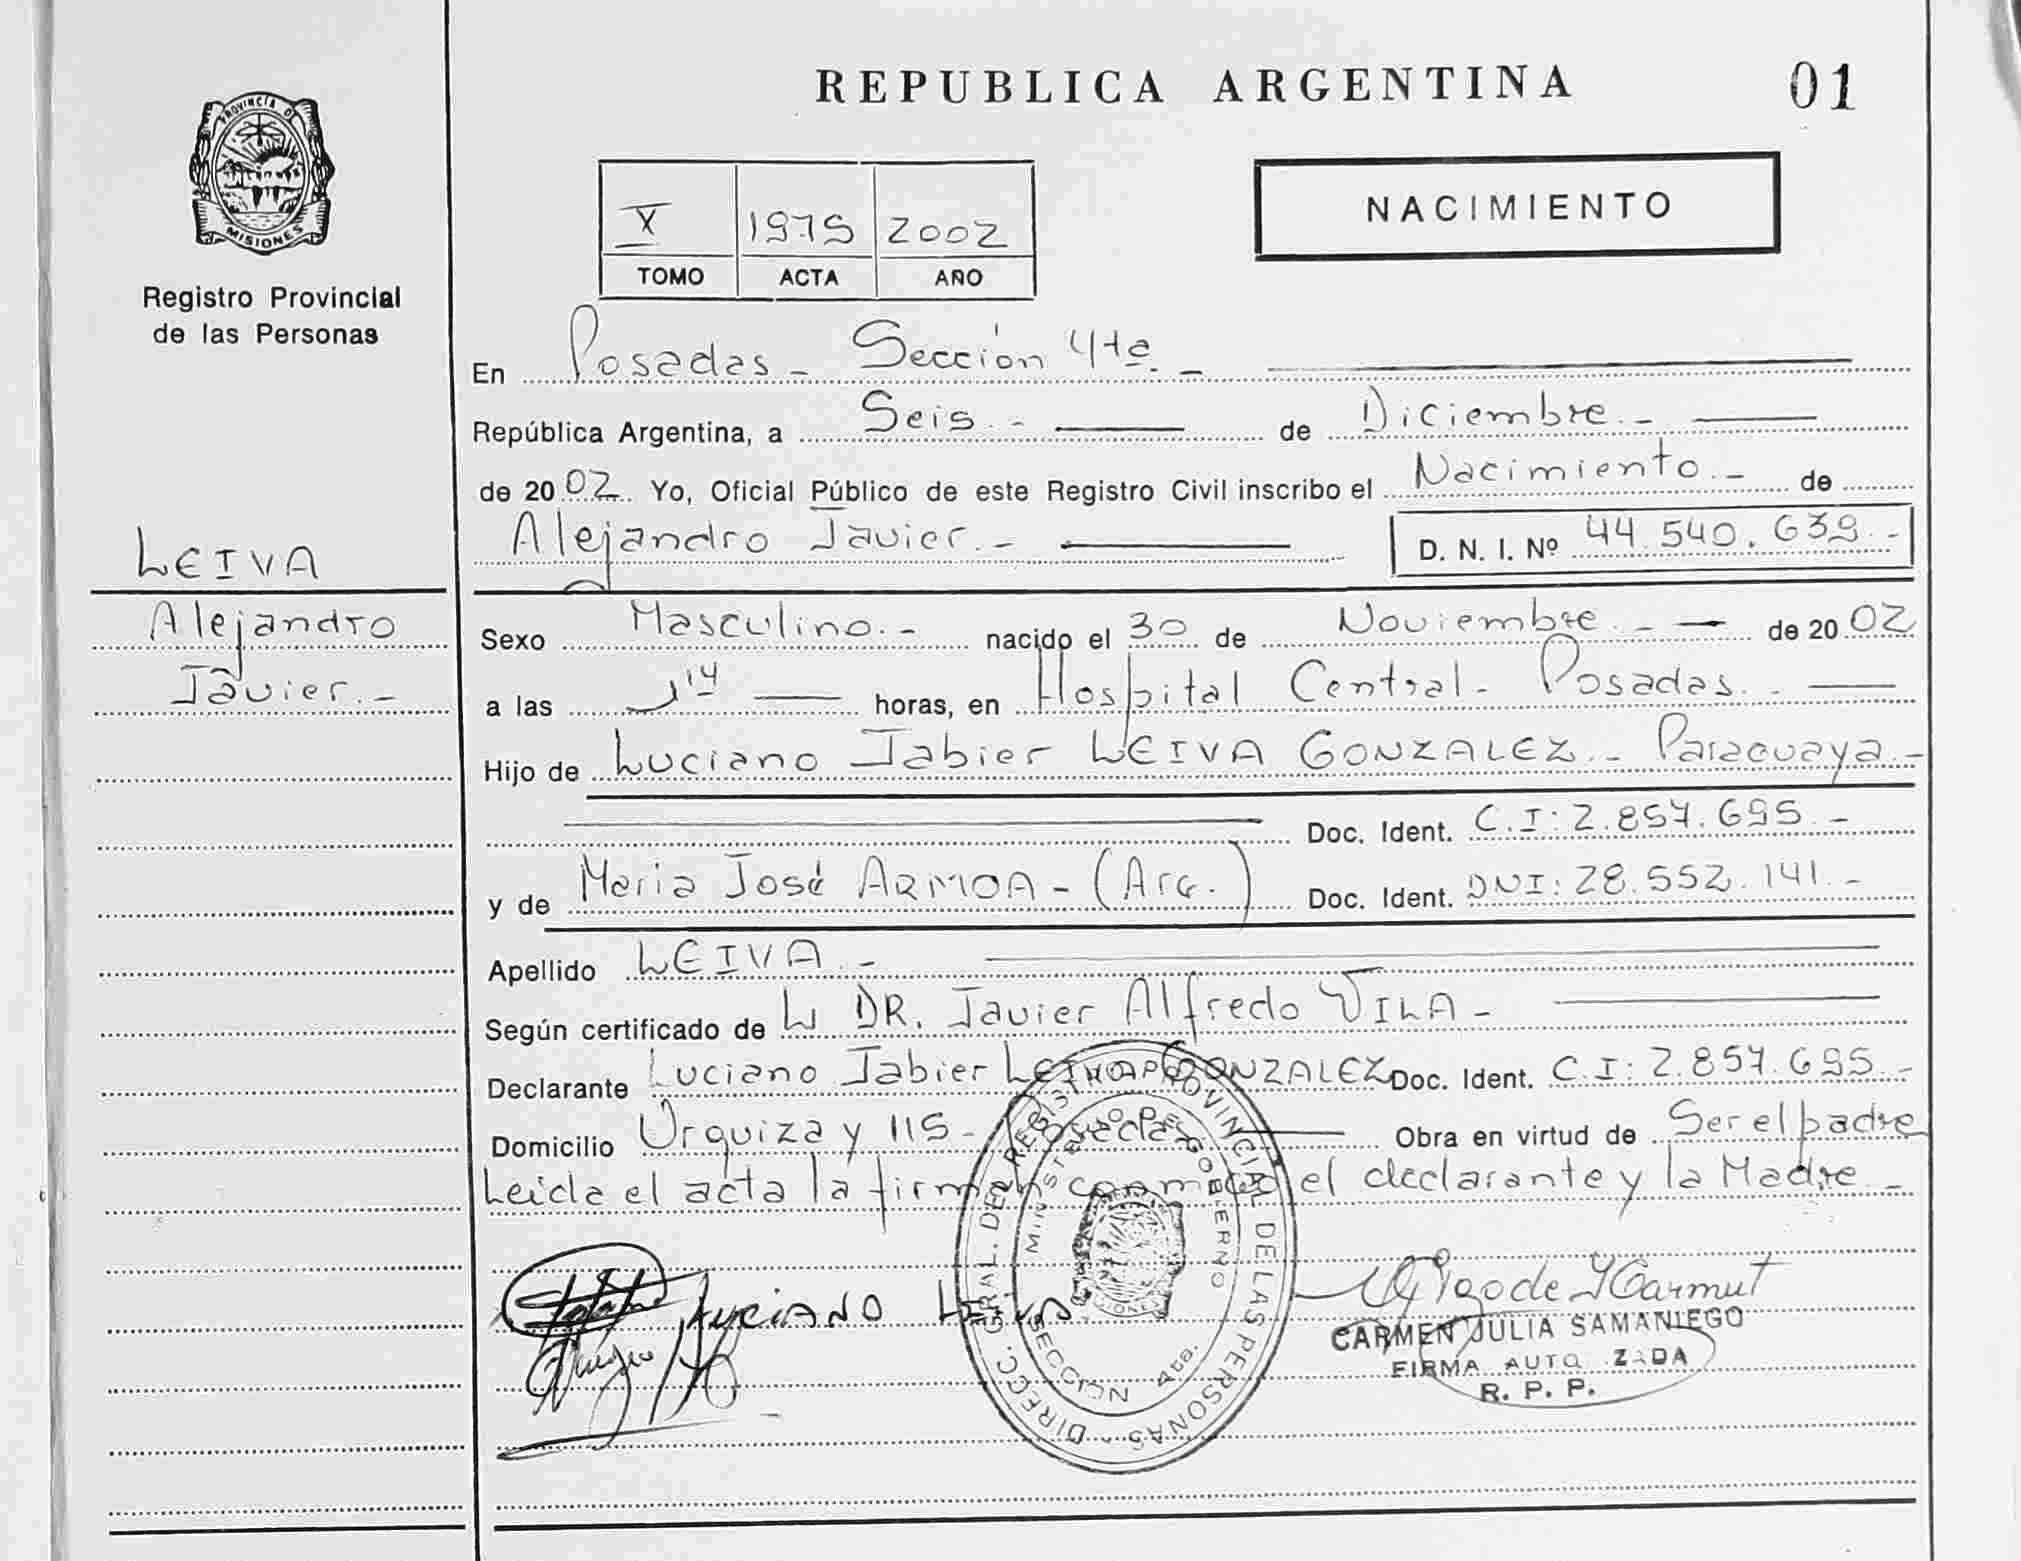 REPUBLICA ARGENTINA
01
PROVINCIA DE
MISIONES
Registro Provincial
de las Personas
NACIMIENTO
X 1975 2002
TOMO ACTA AÑO
En Posadas - Sección 4ta. -
República Argentina, a Seis. - de Diciembre. -
de 2002 Yo, Oficial Público de este Registro Civil inscribo el Nacimiento. - de
Alejandro Javier. -
D. N. I. Nº 44.540.639. -
LEIVA
Alejandro
Javier. -
Sexo Masculino. - nacido el 30 de Noviembre. - de 2002
a las horas, en Hospital Central - Posadas. -
Hijo de Luciano Jabier LEIVA GONZALEZ. - Paraguaya. -
Doc. Ident. C.I: 2.857.695. -
y de Maria José ARMOA - (Arg.) Doc. Ident. DNI: 28.552.141. -
Apellido LEIVA. -
Según certificado de DR. Javier Alfredo VILA -
Declarante Luciano Jabier LEIVA GONZALEZ Doc. Ident. C.I: 2.857.695. -
Domicilio Urquiza y 115 - Posadas Obra en virtud de Ser el padre
Leida el acta la firman conmigo el declarante y la Madre. -
LUCIANO
DIRECC. GRAL. DEL REGISTRO PROVINCIAL DE LAS PERSONAS
MINISTERIO DE GOBIERNO
SECCION 4ta.
CARMEN JULIA SAMANIEGO
FIRMA AUTORIZADA
R. P. P.